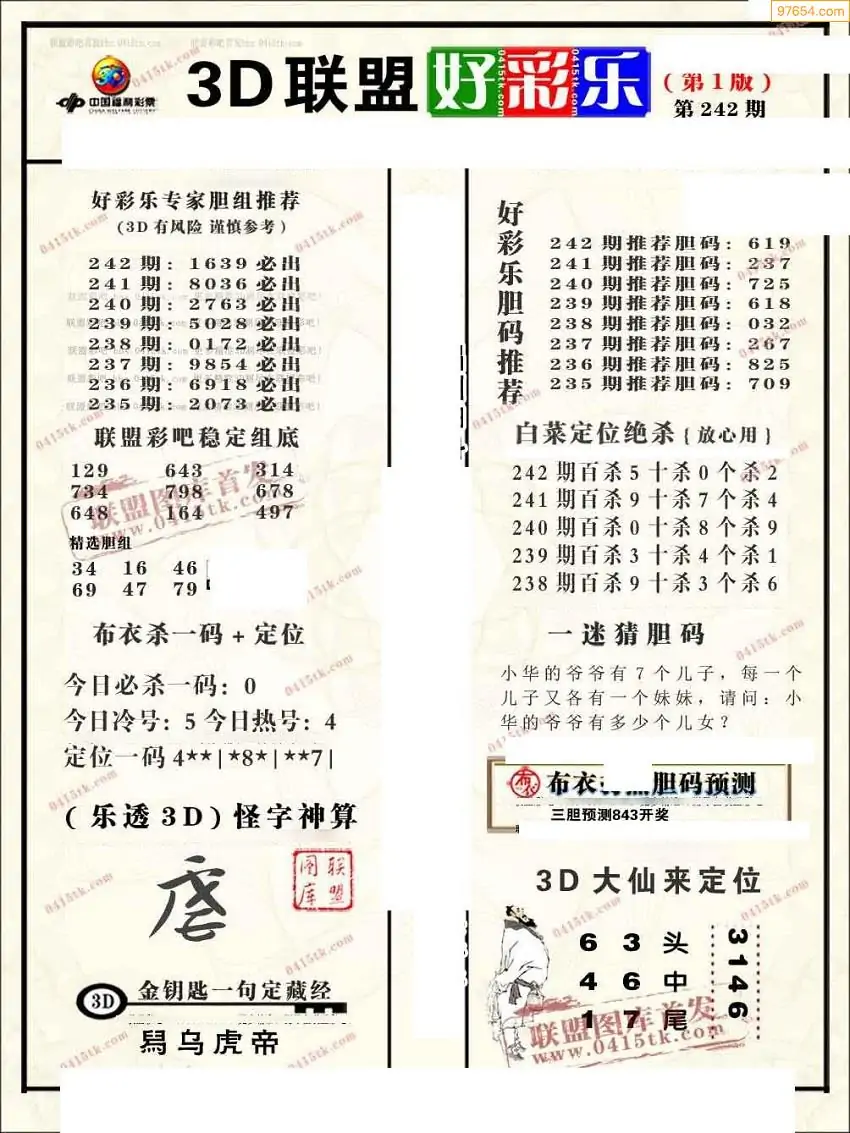 97654.com
中国福利彩票
CHINA WELFARE LOTTERY
3D联盟好彩乐
(第1版)
第242期
好彩乐专家胆组推荐
(3D有风险 谨慎参考)
242期: 1639必出
241期: 8036必出
240期: 2763必出
239期: 5028必出
238期: 0172必出
237期: 9854必出
236期: 6918必出
235期: 2073必出
联盟彩吧稳定组底
129 643 314
734 798 678
648 164 497
精选胆组
34 16 46
69 47 79
布衣杀一码+定位
今日必杀一码: 0
今日冷号: 5 今日热号: 4
定位一码4**|*8*|**7|
(乐透3D)怪字神算
联盟图库
3D
金钥匙一句定藏经
舄乌虎帝
好彩乐胆码推荐
242期推荐胆码: 619
241期推荐胆码: 237
240期推荐胆码: 725
239期推荐胆码: 618
238期推荐胆码: 032
237期推荐胆码: 267
236期推荐胆码: 825
235期推荐胆码: 709
白菜定位绝杀{放心用}
242期百杀5十杀0个杀2
241期百杀9十杀7个杀4
240期百杀0十杀8个杀9
239期百杀3十杀4个杀1
238期百杀9十杀3个杀6
一迷猜胆码
小华的爷爷有7个儿子，每一个
儿子又各有一个妹妹，请问：小
华的爷爷有多少个儿女？
布衣
胆码预测
三胆预测843开奖
3D大仙来定位
6 3 头
4 6 中
1 7 尾
3146
联盟图库首发
www.0415tk.com
联盟图库首发
www.0415tk.com
0415tk.com